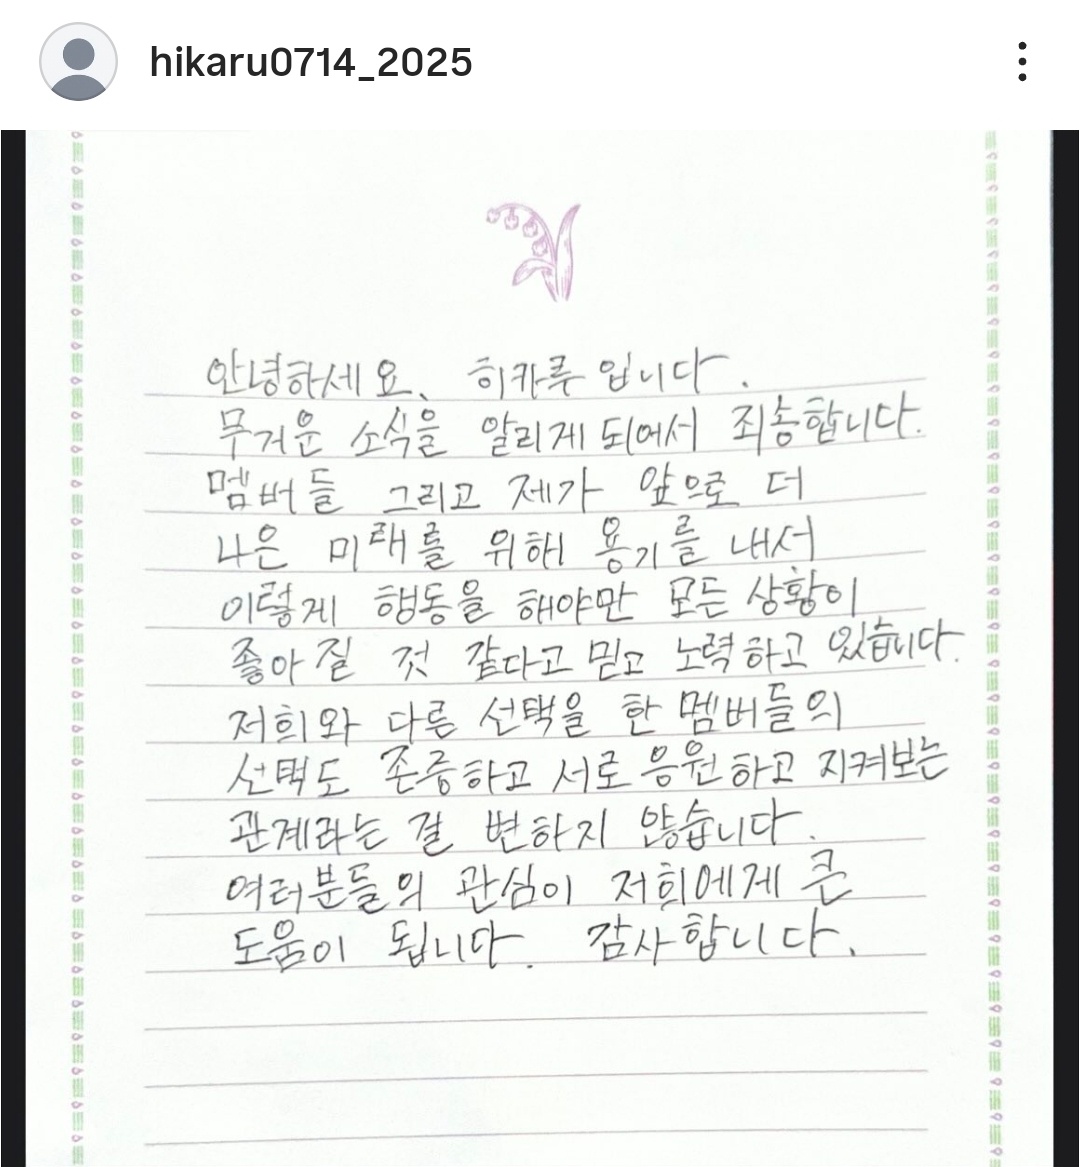 hikaru0714_2025
안녕하세요、 히카루 입니다.
무거운 소식을 알리게 되어서 죄송합니다.
멤버들 그리고 제가 앞으로 더
나은 미래를 위해 용기를 내서
이렇게 행동을 해야만 모든 상황이
좋아 질 것 같다고 믿고 노력하고 있습니다.
저희와 다른 선택을 한 멤버들의
선택도 존중하고 서로 응원하고 지켜보는
관계라는 걸 변하지 않습니다.
여러분들의 관심이 저희에게 큰
도움이 됩니다. 감사합니다.